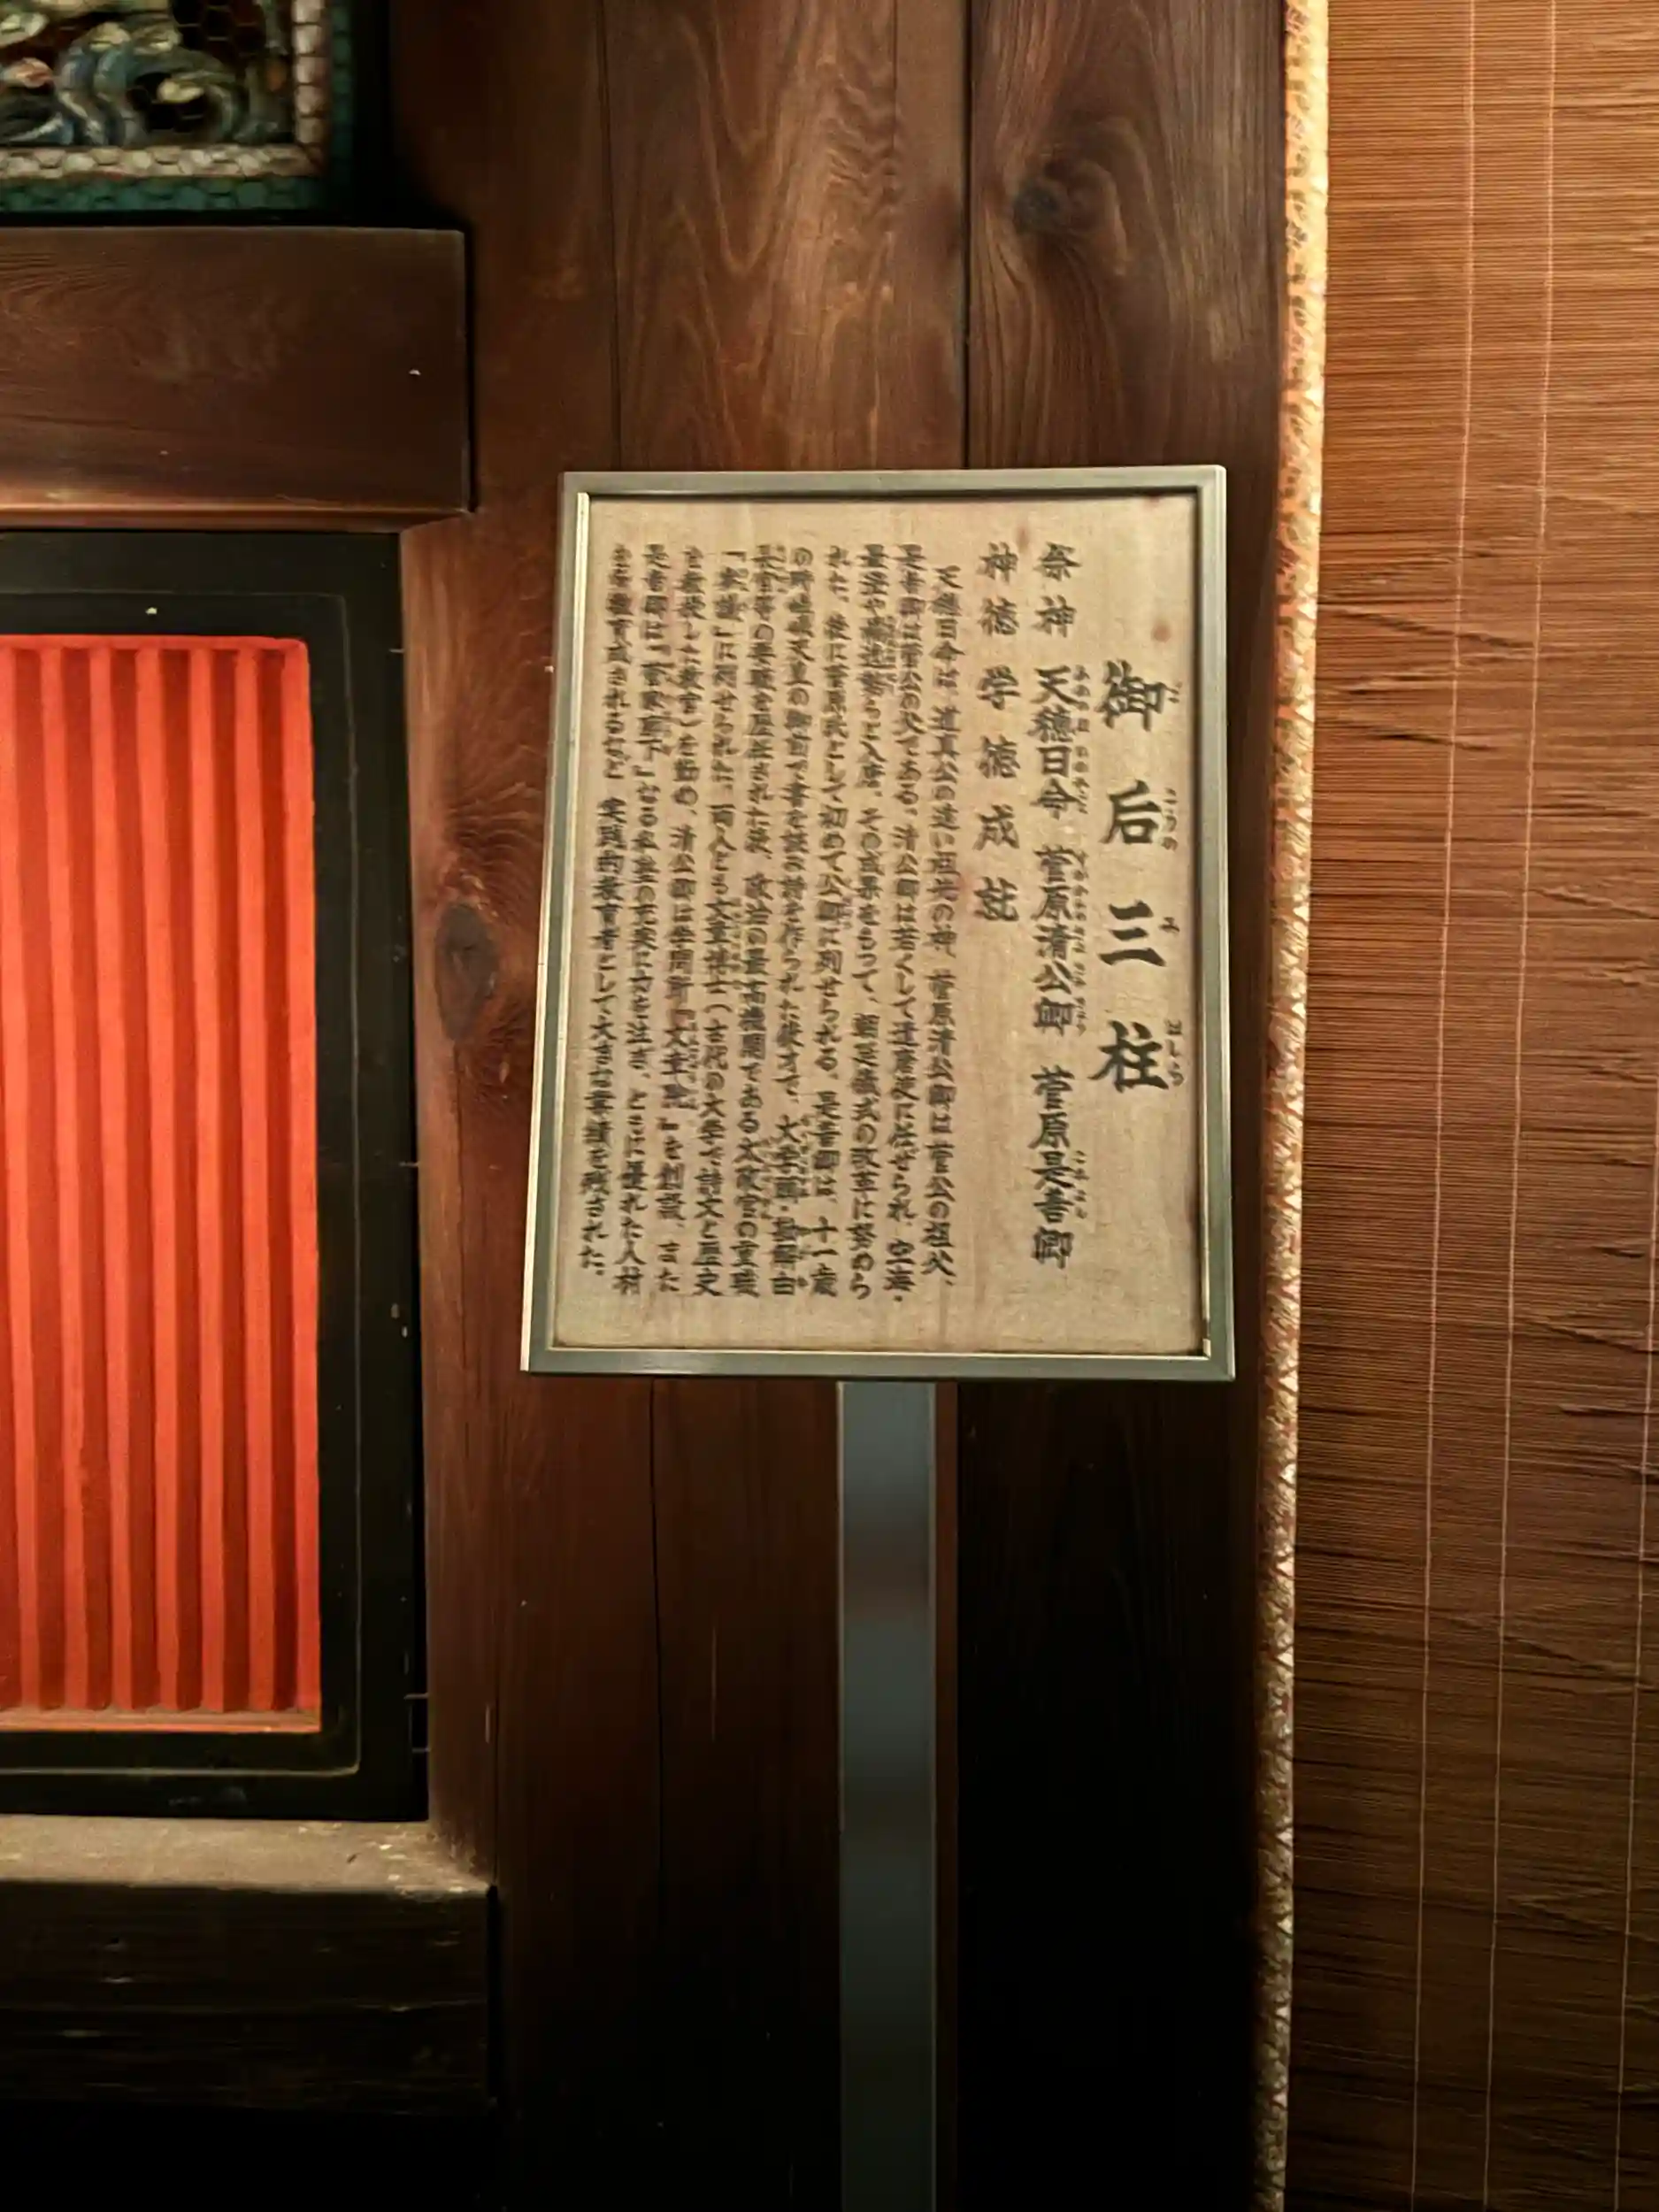 御后三柱
祭神 天穂日命 菅原清公卿 菅原是善卿
神徳 学徳成就
天穂日命は、道真公の遠い祖先の神、菅原清公卿は菅公の祖父、
是善卿は菅公の父である。清公卿は若くして遣唐使に任ぜられ、空海・
最澄や橘逸勢らと入唐。その成果をもって、朝廷儀式の改革に努めら
れた。後に菅原氏として初めて公卿に列せられる。是善卿は、十一歳
の時嵯峨天皇の御前で書を読み詩を作られた俊才で、大学頭・勘解由
長官等の要職を歴任された後、政治の最高機関である太政官の重職
「参議」に列せられた。両人とも文章博士（古代の大学で詩文と歴史
を教授した教官）を勤め、清公卿は学問所「文章院」を創設、また
是善卿は「菅家廊下」なる私塾の充実に力を注ぎ、ともに優れた人材
を多数育成されるなど 実践的教育者として大きな業績を残された。